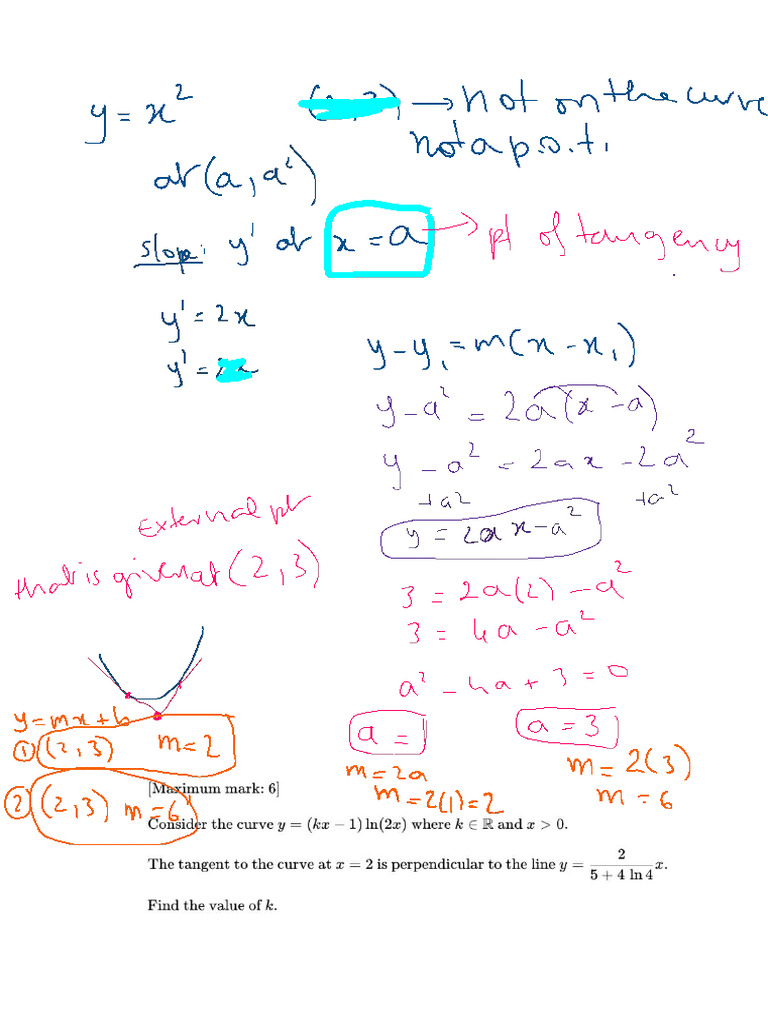 y = x²
→ not on the curve
not a p.o.t.
at (a, a²)
slope: y' at x = a → pt of tangency
y' = 2x
y' =
y - y₁ = m(x - x₁)
y - a² = 2a(x - a)
y - a² = 2ax - 2a²
+a² +a²
y = 2ax - a²
External pt
that is given at (2,3)
3 = 2a(2) - a²
3 = 4a - a²
a² - 4a + 3 = 0
a = 1 a = 3
y = mx + b
① (2,3) m = 2
② (2,3) m = 6
m = 2a
m = 2(1) = 2
m = 2(3)
m = 6
[Maximum mark: 6]
Consider the curve y = (kx − 1) ln(2x) where k ∈ ℝ and x > 0.
The tangent to the curve at x = 2 is perpendicular to the line y = 2/(5 + 4 ln 4) x.
Find the value of k.